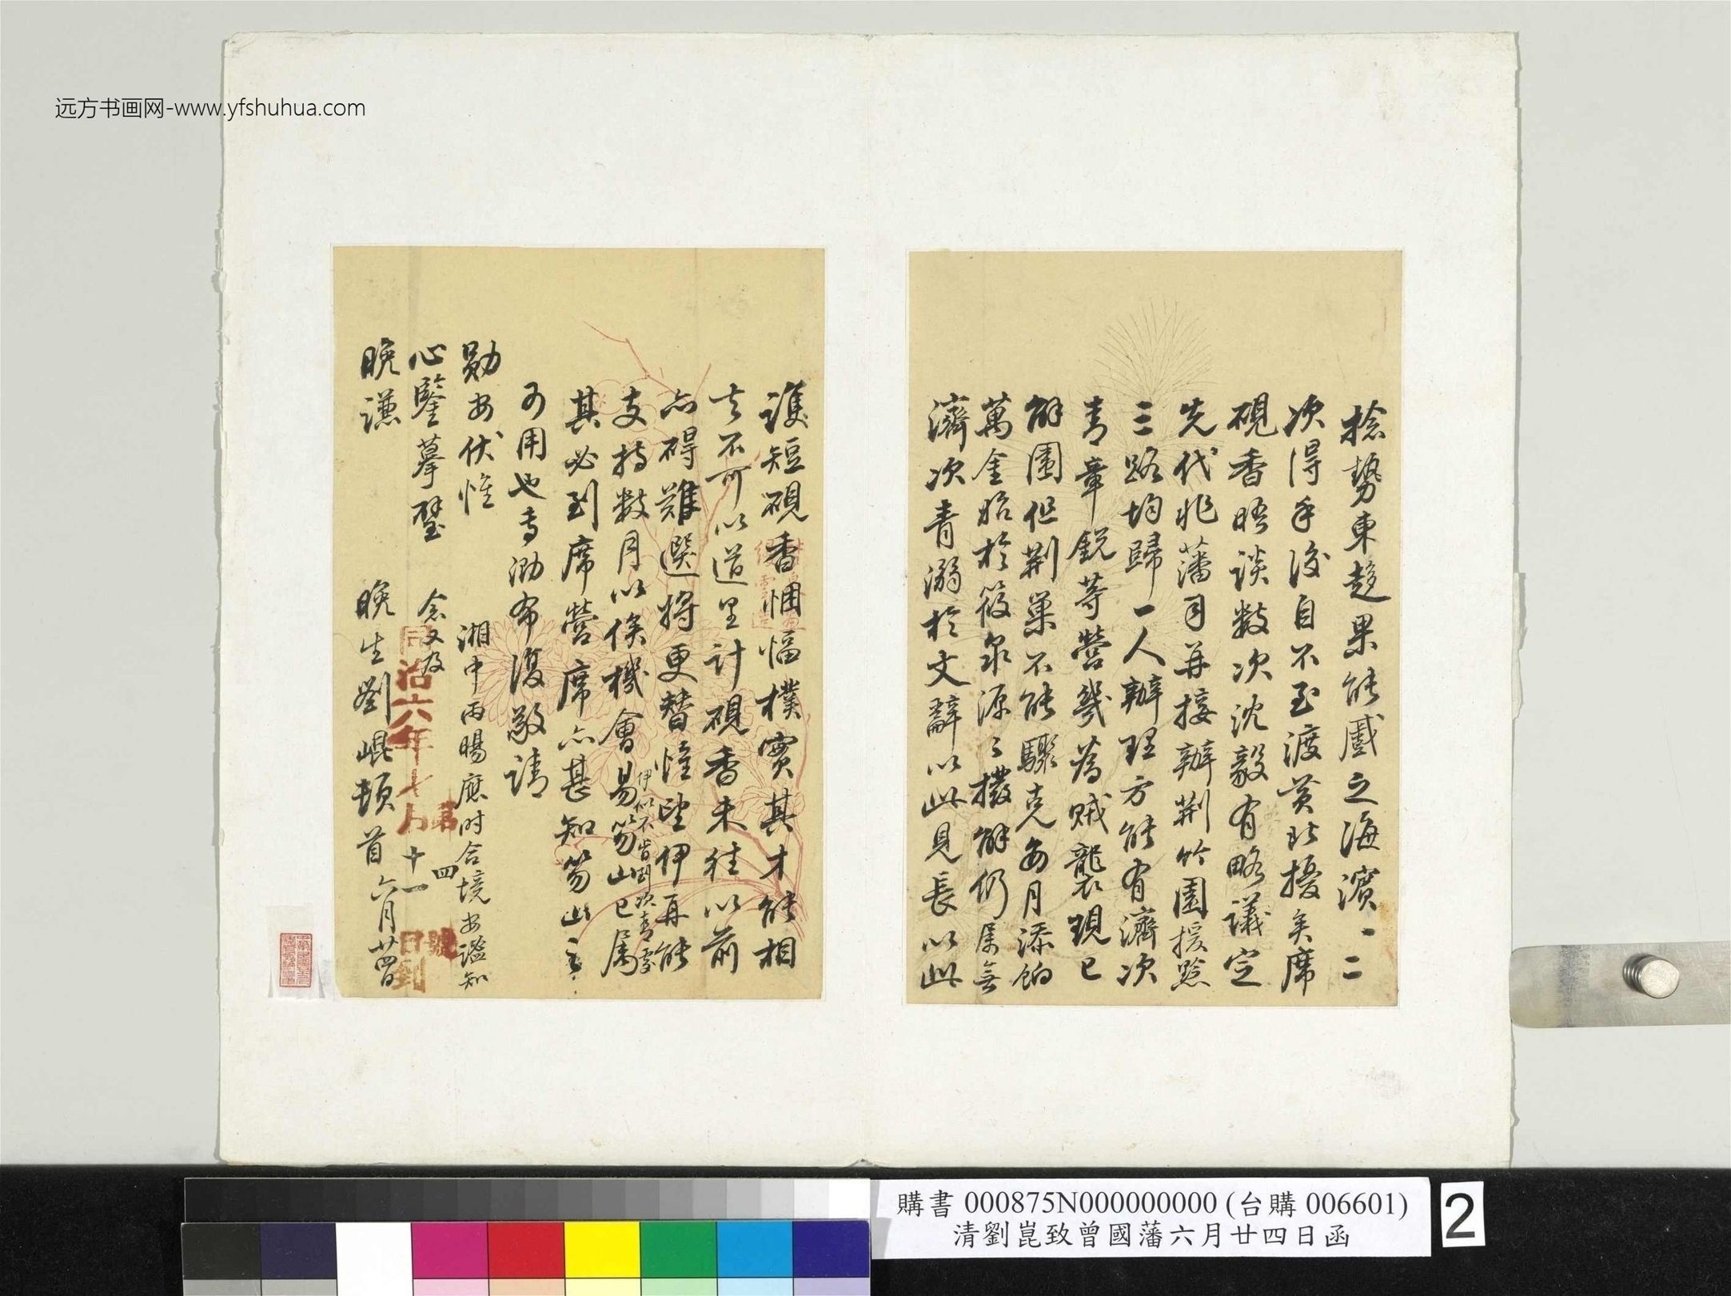 远方书画网-www.yfshuhua.com
捻勢東趨果能蹙之海濱一二
次得手後自不至渡黃北擾矣席
硯香晤談數次沈毅有略議定
先代兆藩司并接辦荆竹園援黔
三路均歸一人辦理方能有濟次
青章銳等營幾為賊襲現已
解圍但荆巢不能驟克每月添餉
萬金貽於筱泉源源撥解仍屬無
濟次青溺於文辭以此見長以此
護短硯香悃愊樸實其才能相
去不可以道里計硯香未往以前
亦碍難選將更替惟望伊再能
支持數月以俟機會易笏山已屬
伊似不肯與次青處
其必到席營席亦甚知笏山之
可用也專泐布復敬請
勛安伏惟
心鑒摹璧
湘中雨暘應時合境安謐知
念又及
晚謙
晚生劉崐頓首六月廿四日
同治六年七月十一日到
第四號
購書 000875N000000000 (台購 006601)
清劉崑致曾國藩六月廿四日函
2